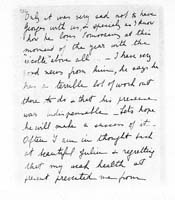 Only it was very sad not to have
Georges with us, & specially as I know
how he loves Tomorrow at this
moment of the year with the
récolte above all ... I have very
sad news from him, he says he
has a terrible lot of work out
there to do & that his presence
was indispensable. Lets hope
he will make a success of it.
Often I am in thought back
at beautiful & regretting
that my sad health at
present prevented me from